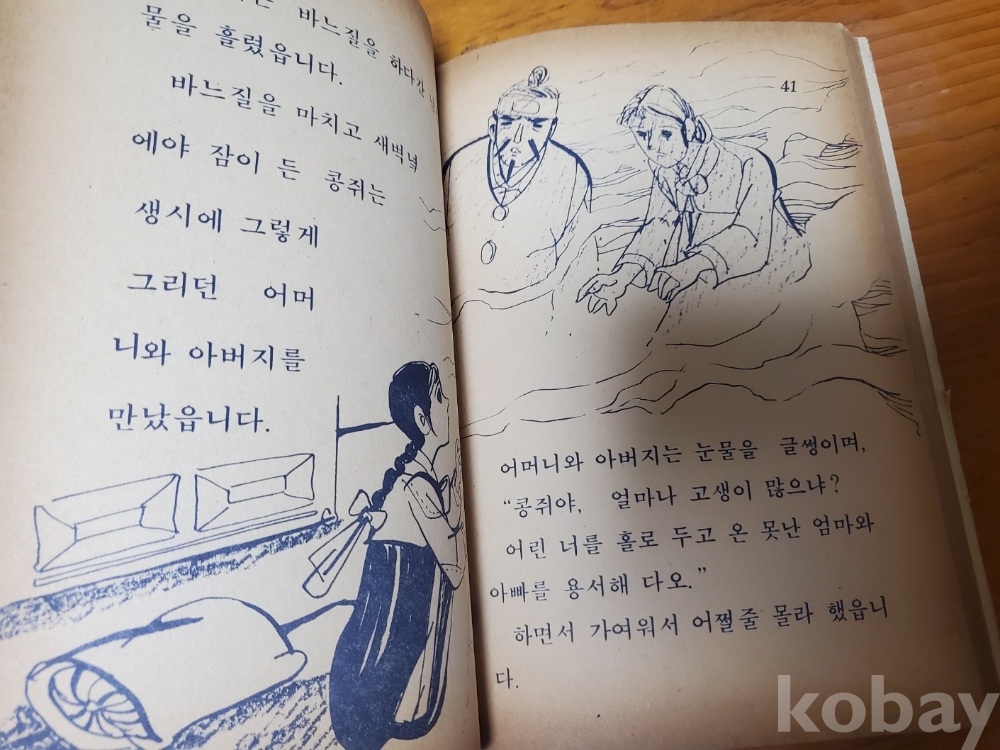 바느질을 하다가
물을 흘렸읍니다.
바느질을 마치고 새벽녘
에야 잠이 든 콩쥐는
생시에 그렇게
그리던 어머
니와 아버지를
만났읍니다.
41
어머니와 아버지는 눈물을 글썽이며,
“콩쥐야, 얼마나 고생이 많으냐?
어린 너를 홀로 두고 온 못난 엄마와
아빠를 용서해 다오.”
하면서 가여워서 어쩔줄 몰라 했읍니
다.
kobay